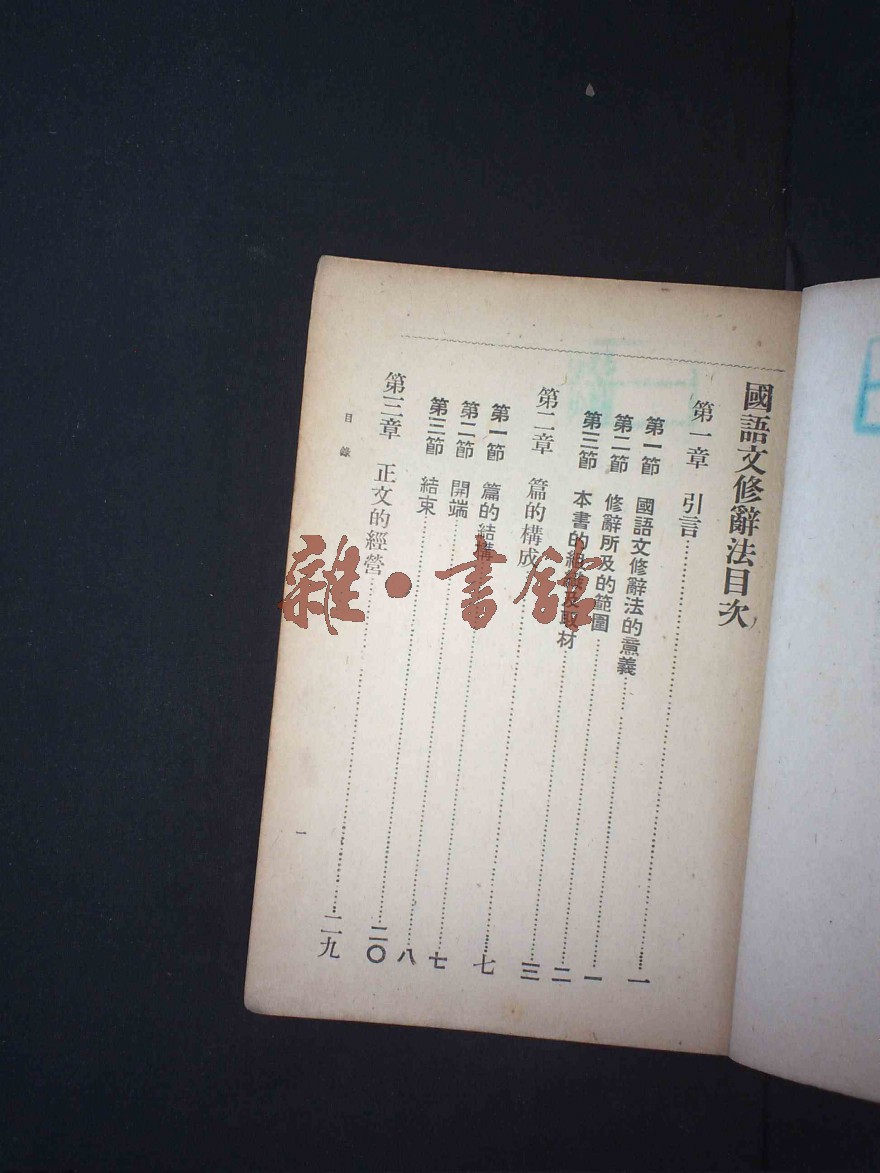 國語文修辭法目次
第一章　引言……一
第一節　國語文修辭法的意義……一
第二節　修辭所及的範圍……二
第三節　本書的組織及取材……三
第二章　篇的構成……七
第一節　篇的結構……七
第二節　開端……八
第三節　結束……二〇
第三章　正文的經營……二九
目錄
一
雜·書館